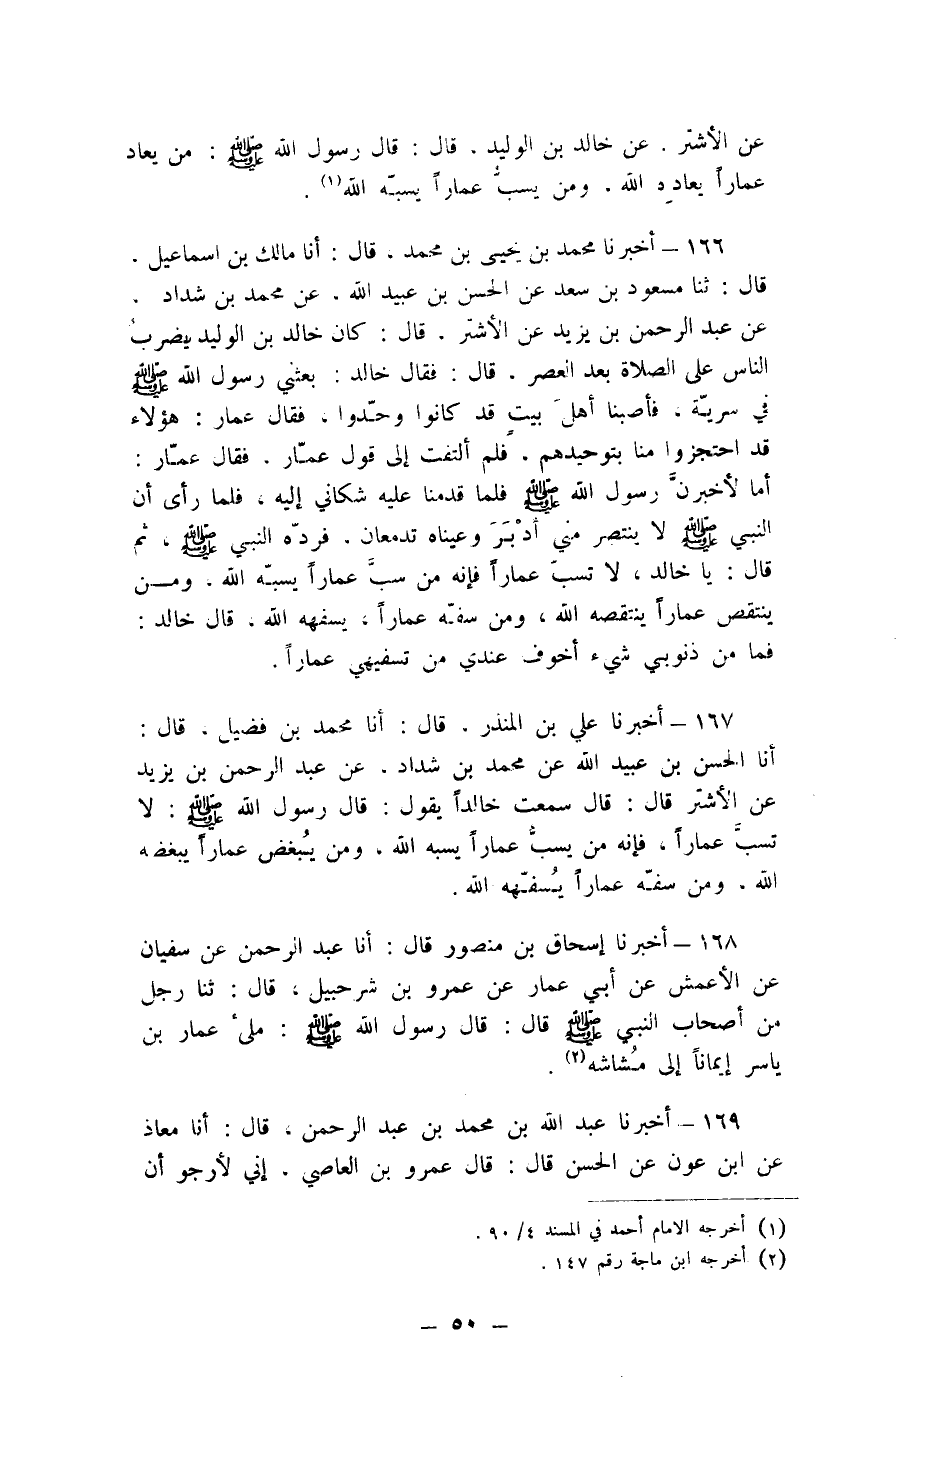 عن الأشتر . عن خالد بن الوليد . قال : قال رسول الله ﷺ : من يعاد
عماراً يعاده الله . ومن يسبُّ عماراً يسبّه الله(١) .
١٦٦ – أخبرنا محمد بن يحيى بن محمد . قال : أنا مالك بن اسماعيل .
قال : ثنا مسعود بن سعد عن الحسن بن عبيد الله . عن محمد بن شداد .
عن عبد الرحمن بن يزيد عن الأشتر . قال : كان خالد بن الوليد يضربُ
الناس على الصلاة بعد العصر . قال : فقال خالد : بعثني رسول الله ﷺ
في سريّة ، فأصبنا أهلَ بيتٍ قد كانوا وحّدوا ، فقال عمار : هؤلاء
قد احتجزوا منا بتوحيدهم . فلم ألتفت إلى قول عمّار . فقال عمّار :
أما لأخبرنَّ رسول الله ﷺ فلما قدمنا عليه شكاني إليه ، فلما رأى أن
النبي ﷺ لا ينتصر مني أدْبَرَ وعيناه تدمعان . فردّه النبي ﷺ ، ثم
قال : يا خالد ، لا تسبّ عماراً فإنه من سبَّ عماراً يسبّه الله . ومـــن
ينتقص عماراً ينتقصه الله ، ومن سفّه عماراً ، يسفهه الله . قال خالد :
فما من ذنوبي شيء أخوف عندي من تسفيهي عماراً .
١٦٧ – أخبرنا علي بن المنذر . قال : أنا محمد بن فضيل . قال :
أنا الحسن بن عبيد الله عن محمد بن شداد . عن عبد الرحمن بن يزيد
عن الأشتر قال : قال سمعت خالداً يقول : قال رسول الله ﷺ : لا
تسبَّ عماراً ، فإنه من يسبُّ عماراً يسبه الله . ومن يُبغض عماراً يبغضه
الله . ومن سفّه عماراً يُسفّهه الله .
١٦٨ – أخبرنا إسحاق بن منصور قال : أنا عبد الرحمن عن سفيان
عن الأعمش عن أبي عمار عن عمرو بن شرحبيل ، قال : ثنا رجل
من أصحاب النبي ﷺ قال : قال رسول الله ﷺ : ملىٔ عمار بن
ياسر إيماناً إلى مُشاشه(٢) .
١٦٩ – أخبرنا عبد الله بن محمد بن عبد الرحمن ، قال : أنا معاذ
عن ابن عون عن الحسن قال : قال عمرو بن العاصي . إني لأرجو أن
(١) أخرجه الامام أحمد في المسند ٤/ ٩٠ .
(٢) أخرجه ابن ماجة رقم ١٤٧ .
– ٥٠ –